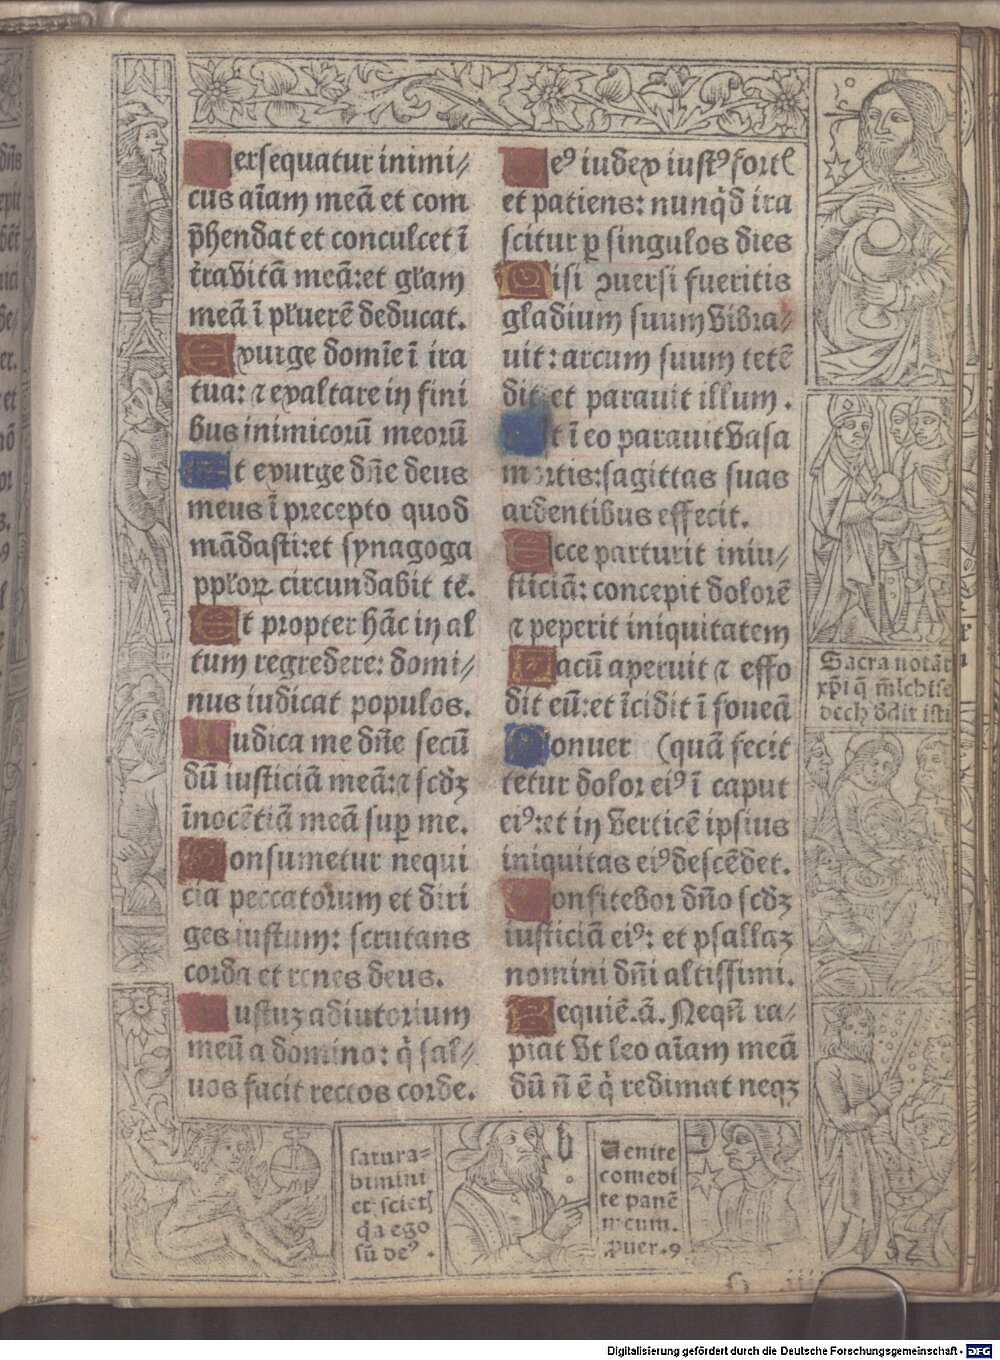 Persequatur inimi⸗
cus aĩam meã et com
p̃hendat et conculcet ĩ
t̃ra vitã meã: et gl̃am
meã ĩ pl̃uerẽ deducat.
Exurge domĩe ĩ ira
tua: ⁊ exaltare in fini
bus inimicorũ meorũ
Et exurge dñe deus
meus ĩ precepto quod
mãdasti: et synagoga
ppl̃oꝝ circundabit te.
Et propter hãc in al
tum regredere: domi⸗
nus iudicat populos.
Iudica me dñe secũ
dũ iusticiã meã: ⁊ scdꝫ
ĩnocẽtiã meã suꝑ me.
Consumetur nequi
cia peccatorum et diri
ges iustum: scrutans
corda et renes deus.
Iustuꝫ adiutorium
meũ a domino: q̇ sal⸗
uos facit rectos corde.
Deꝰ iudex iustꝰ fort̃
et patiens: nunqd̃ ira
scitur ꝑ singulos dies
Nisi ꝯuersi fueritis
gladium suum vibra⸗
uit: arcum suum tetẽ
dit et parauit illum.
Et ĩ eo parauit vasa
mortis: sagittas suas
ardentibus effecit.
Ecce parturit iniu⸗
sticiã: concepit dolorẽ
⁊ peperit iniquitatem
Lacũ aperuit ⁊ effo
dit eũ: et ĩcidit ĩ foueã
Conuer (quã fecit
tetur dolor eiꝰ ĩ caput
eiꝰ: et in verticẽ ipsius
iniquitas eiꝰ descẽdet.
Confitebor dño scdꝫ
iusticiã eiꝰ: et psallaꝫ
nomini dñi altissimi.
Requiẽ. ã. Neqñ ra⸗
piat vt leo aĩam meã
dũ ñ ẽ q̇ redimat neqꝫ
Sacra notãt
xp̃i q̃ m̃lchise
dech dãt isti
satura⸗
bimini
et scietꝭ
q̃a ego
sũ deꝰ.
Uenite
comedi
te panẽ
meum.
ꝓuer. 9